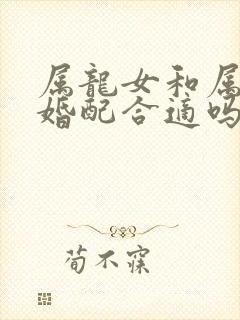 属龍女和属
婚配合適吗
荀不寐